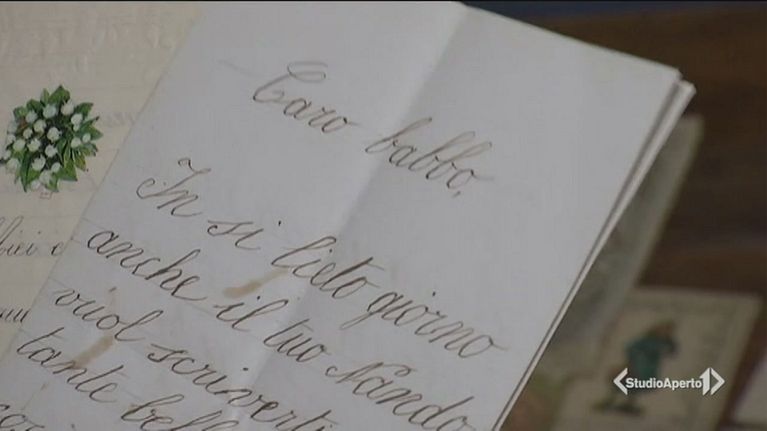 Caro babbo,
In si lieto giorno
anche il tuo Nando
vuol scriverti
tante bell
StudioAperto1